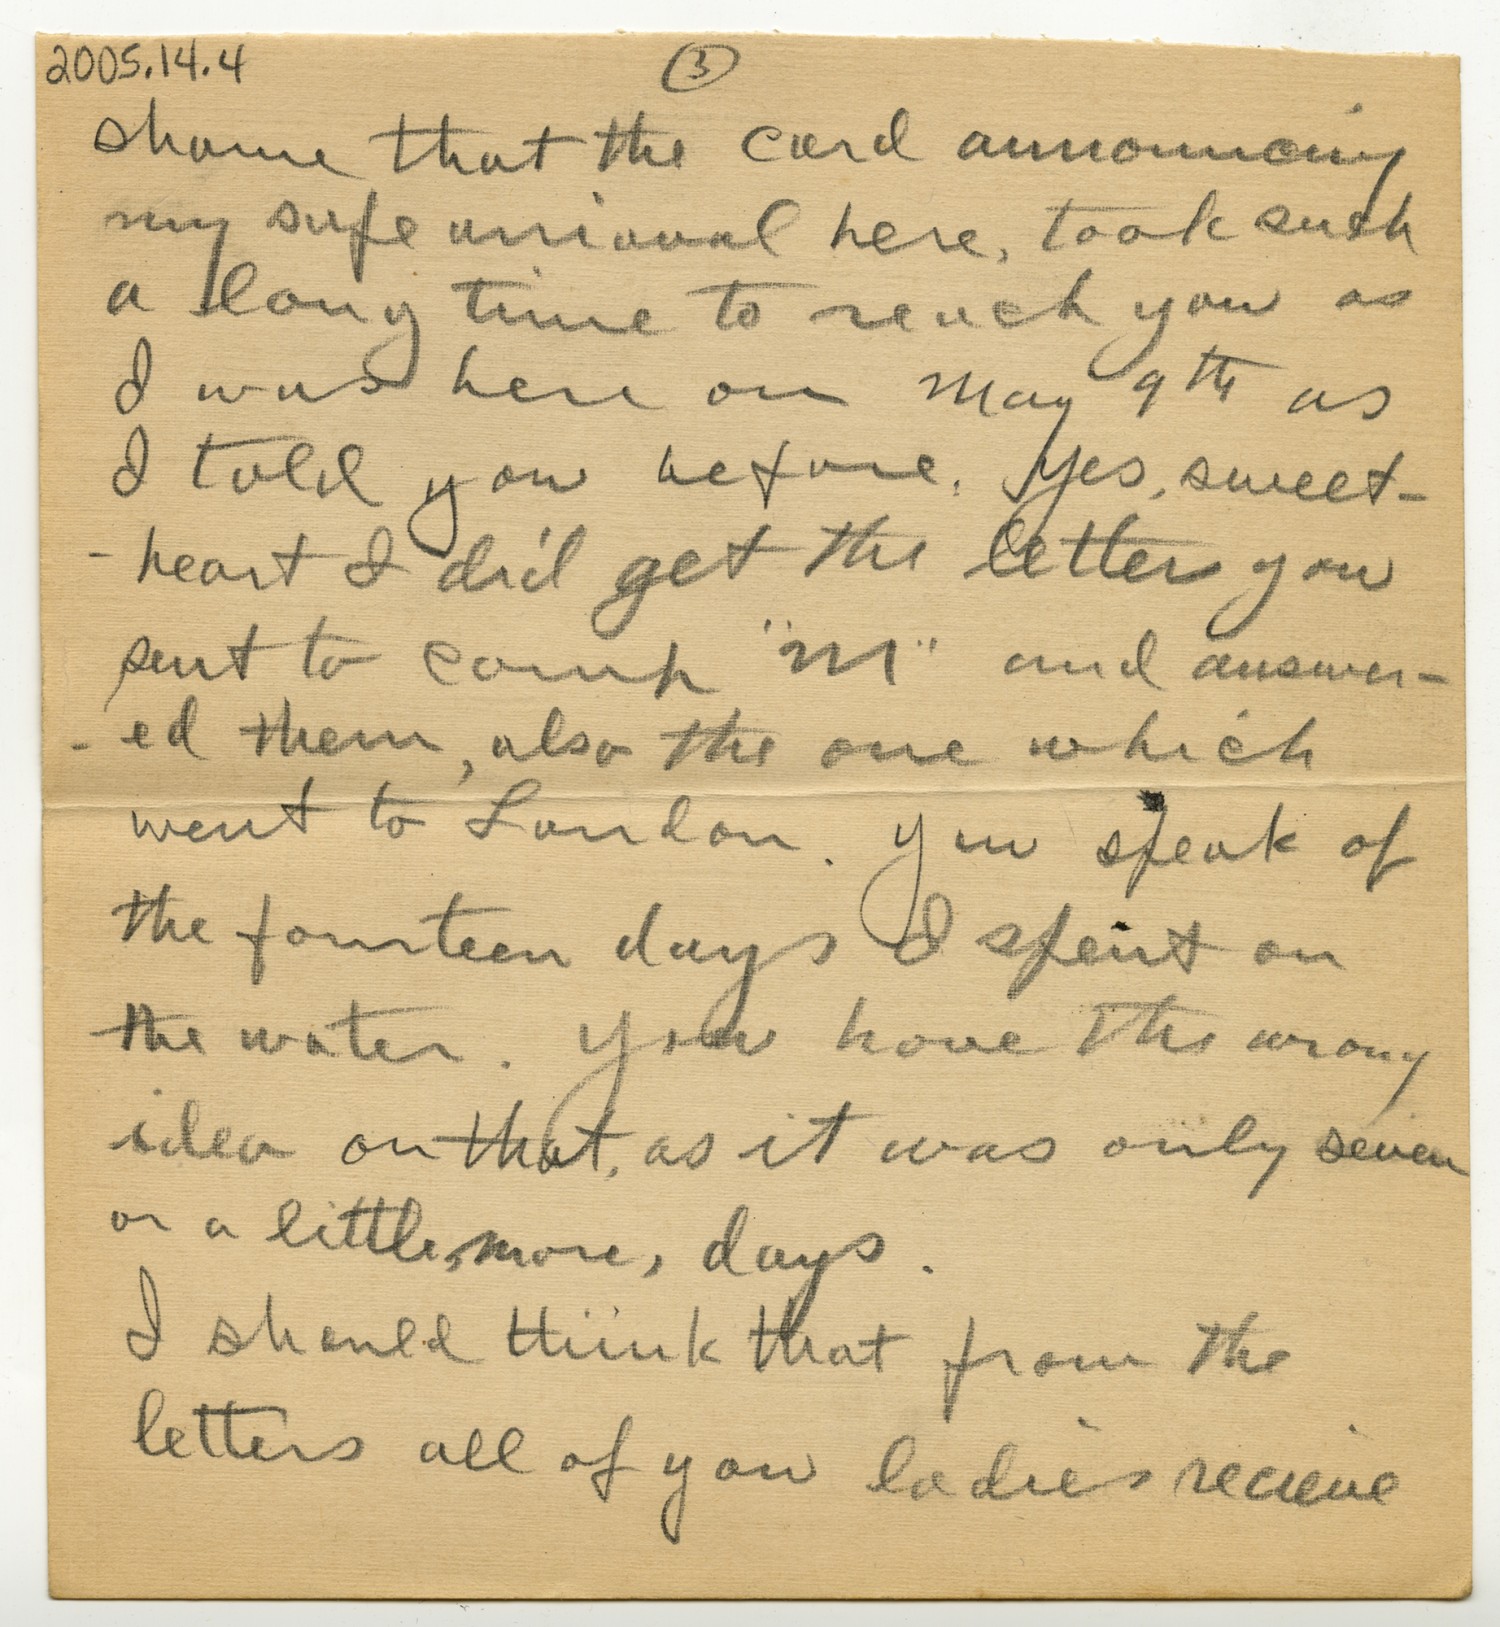 2005.14.4
3
shame that the card announcing
my safe arrival here, took such
a long time to reach you as
I was here on May 9th as
I told you before. Yes, sweet-
- heart I did get the letters you
sent to camp "M" and answer-
- ed them, also the one which
went to London. You speak of
the fourteen days I spent on
the water. You have the wrong
idea on that, as it was only seven
or a little, more, days.
I should think that from the
letters all of you ladies recieve